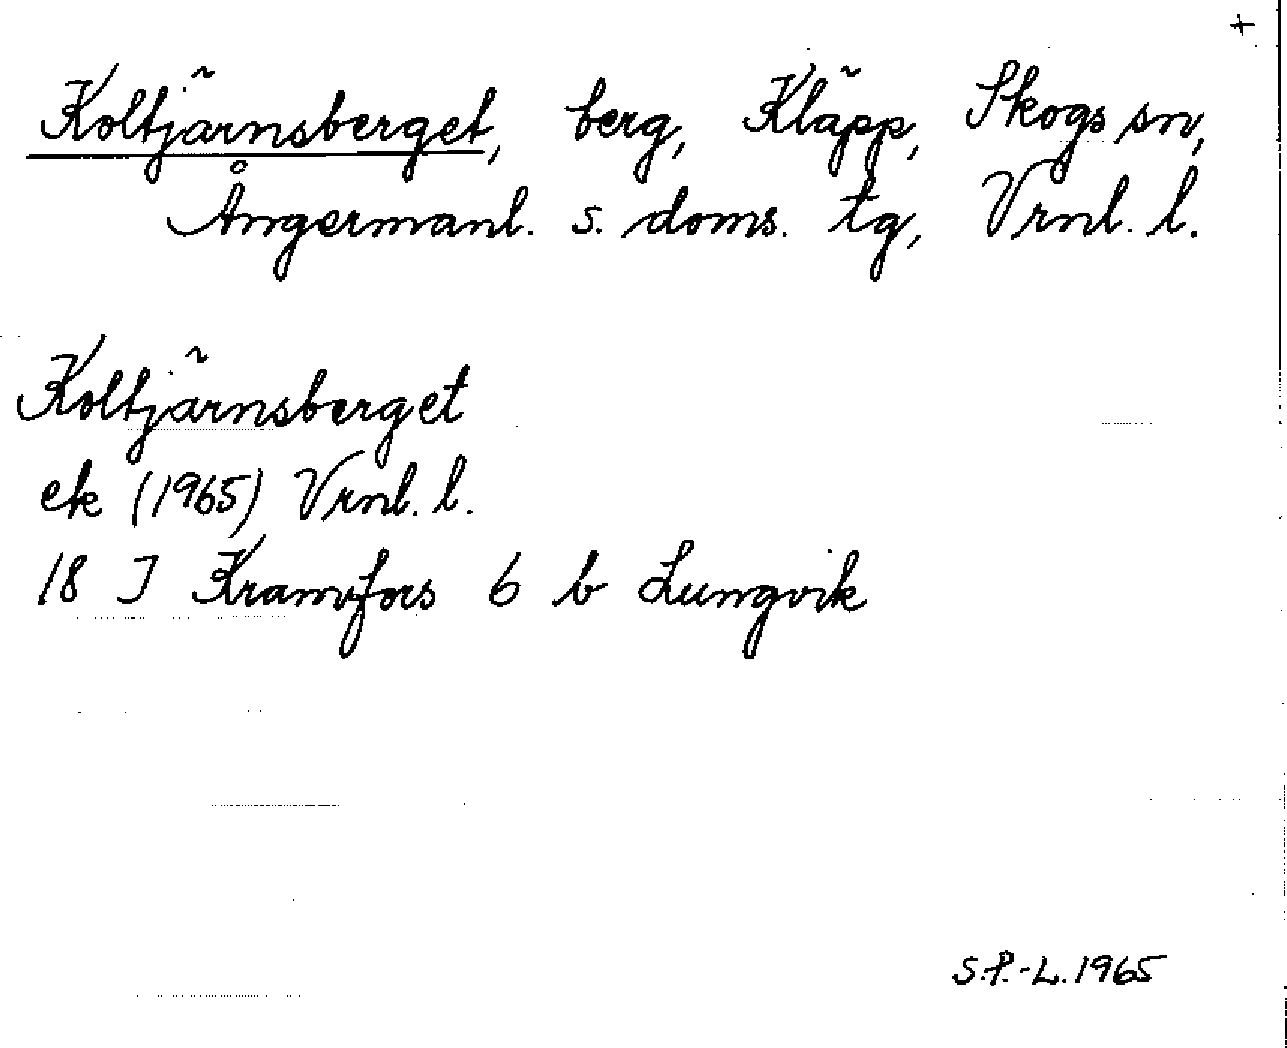 +
Koltjärnsberget, berg, Kläpp, Skogs sn,
Ångermanl. s. doms. tg, Vrnl. l.
Koltjärnsberget
ek (1965) Vrnl. l.
18 I Kramfors 6 b Lungvik
S.P.-L. 1965